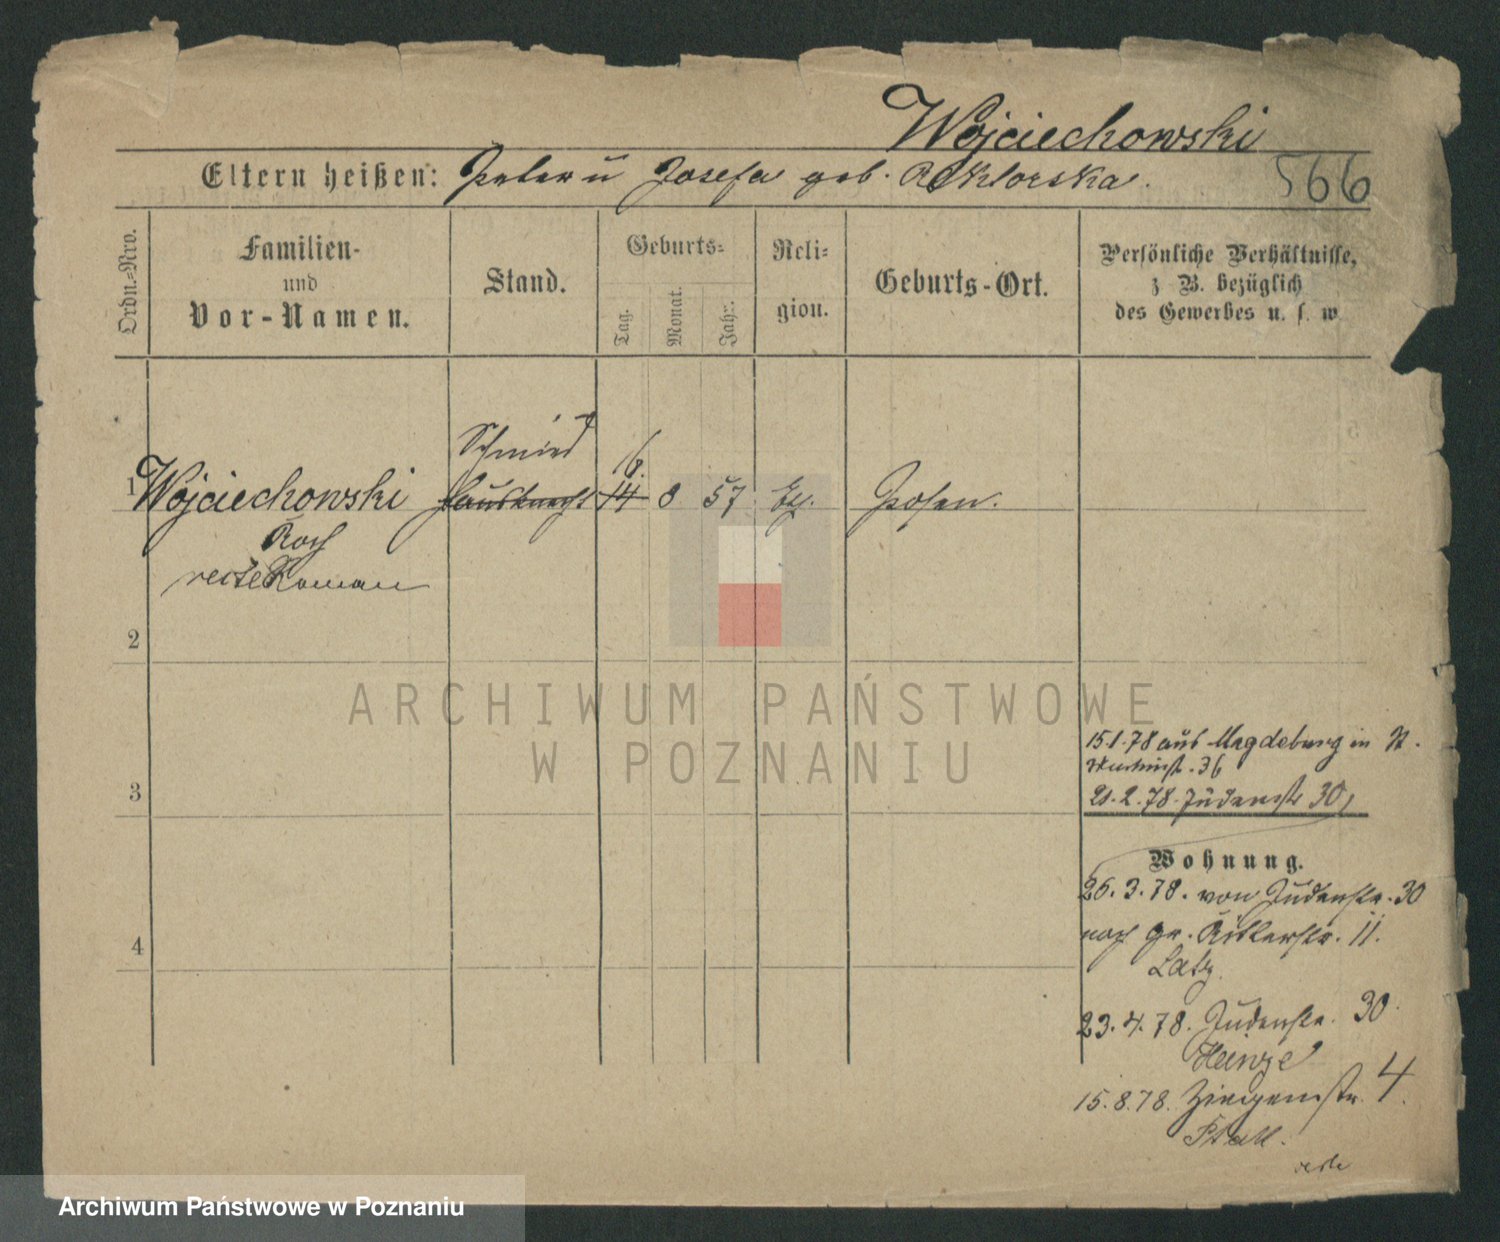 Wojciechowski
Eltern heißen: Peter u Josefa geb. Rektorska.
566
Ordn.=Nro.
Familien-
und
Vor-Namen.
Stand.
Geburts=
Tag.
Monat.
Jahr.
Reli=
gion.
Geburts-Ort.
Persönliche Verhältnisse,
z B. bezüglich
des Gewerbes u. s. w
Schmied
16.
1 Wojciechowski Hausknecht 14 8 57 Posen.
Roch
recte Roman
2
3
4
15.1.78 aus Magdeburg in
36
21.2.78. Judenstr 30,
Wohnung.
26.3.78. von Judenstr. 30
nach gr. Ritterstr. 11.
Latz.
23.4.78. Judenstr. 30.
Heinze
15.8.78. Ziegenstr. 4.
ARCHIWUM PAŃSTWOWE
W POZNANIU
Archiwum Państwowe w Poznaniu